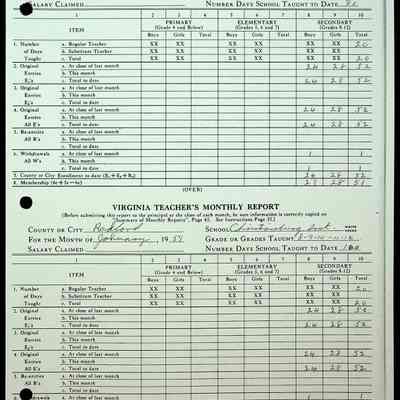 SALARY CLAIMED NUMBER DAYS SCHOOL TAUGHT TO DATE
1 2 3 4 5 6 7 8 9 10
ITEM PRIMARY (Grade 4 and Below) ELEMENTARY (Grades 5, 6 and 7) SECONDARY (Grades 8-12)
Boys Girls Total Boys Girls Total Boys Girls Total
1. Number a. Regular Teacher XX XX XX XX XX XX 20
of Days b. Substitute Teacher XX XX XX XX XX XX
Taught c. Total XX XX XX XX XX XX 20
2. Original a. At close of last month 24 28 52
Entries b. This month
E₁'s c. Total to date 24 28 52
3. Original a. At close of last month
Entries b. This month
E₂'s c. Total to date
4. Original a. At close of last month 24 28 52
Entries b. This month
All E's c. Total to date 24 28 52
5. Re-entries a. At close of last month
b. This month
c. Total to date
6. Withdrawals a. At close of last month 1 1
All W's b. This month
c. Total to date 1 1
7. County or City Enrollment to date (R₁+E₁+R₂) 28 52
8. Membership (4c+5c-6c) 28 51
(OVER)
VIRGINIA TEACHER'S MONTHLY REPORT
(Before submitting this report to the principal at the close of each month, be sure information is correctly copied on
"Summary of Monthly Reports", Page 42. See Instructions, Page 37.)
COUNTY OR CITY Radford SCHOOL WHITE NEGRO
FOR THE MONTH OF January, 19 GRADE OR GRADES TAUGHT 8-9-10-11-12
SALARY CLAIMED NUMBER DAYS SCHOOL TAUGHT TO DATE
1 2 3 4 5 6 7 8 9 10
ITEM PRIMARY (Grade 4 and Below) ELEMENTARY (Grades 5, 6 and 7) SECONDARY (Grades 8-12)
Boys Girls Total Boys Girls Total Boys Girls Total
1. Number a. Regular Teacher XX XX XX XX XX XX 20
of Days b. Substitute Teacher XX XX XX XX XX XX
Taught c. Total XX XX XX XX XX XX 20
2. Original a. At close of last month 24 28 52
Entries b. This month
E₁'s c. Total to date 24 28 52
3. Original a. At close of last month
Entries b. This month
E₂'s c. Total to date
4. Original a. At close of last month 24 28 52
Entries b. This month
All E's c. Total to date 24 28 52
5. Re-entries a. At close of last month
b. This month
c. Total to date
a. At close of last month 1 1